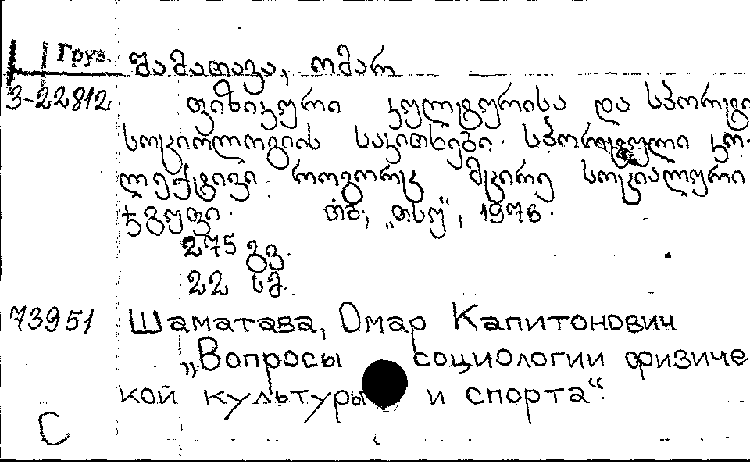 Груз. შამათავა, ომარ
3-22812 ფიზიკური კულტურისა და სპორტი
სოციოლოგიის საკითხები. სპორტული კო-
ლექტივი როგორც მცირე სოციალური
ჯგუფი. თბ., „თსუ", 1976.
275 გვ.
22 სმ.
73951 Шаматава, Омар Капитонович
„Вопросы социологии физиче
кой культуры и спорта“.
С